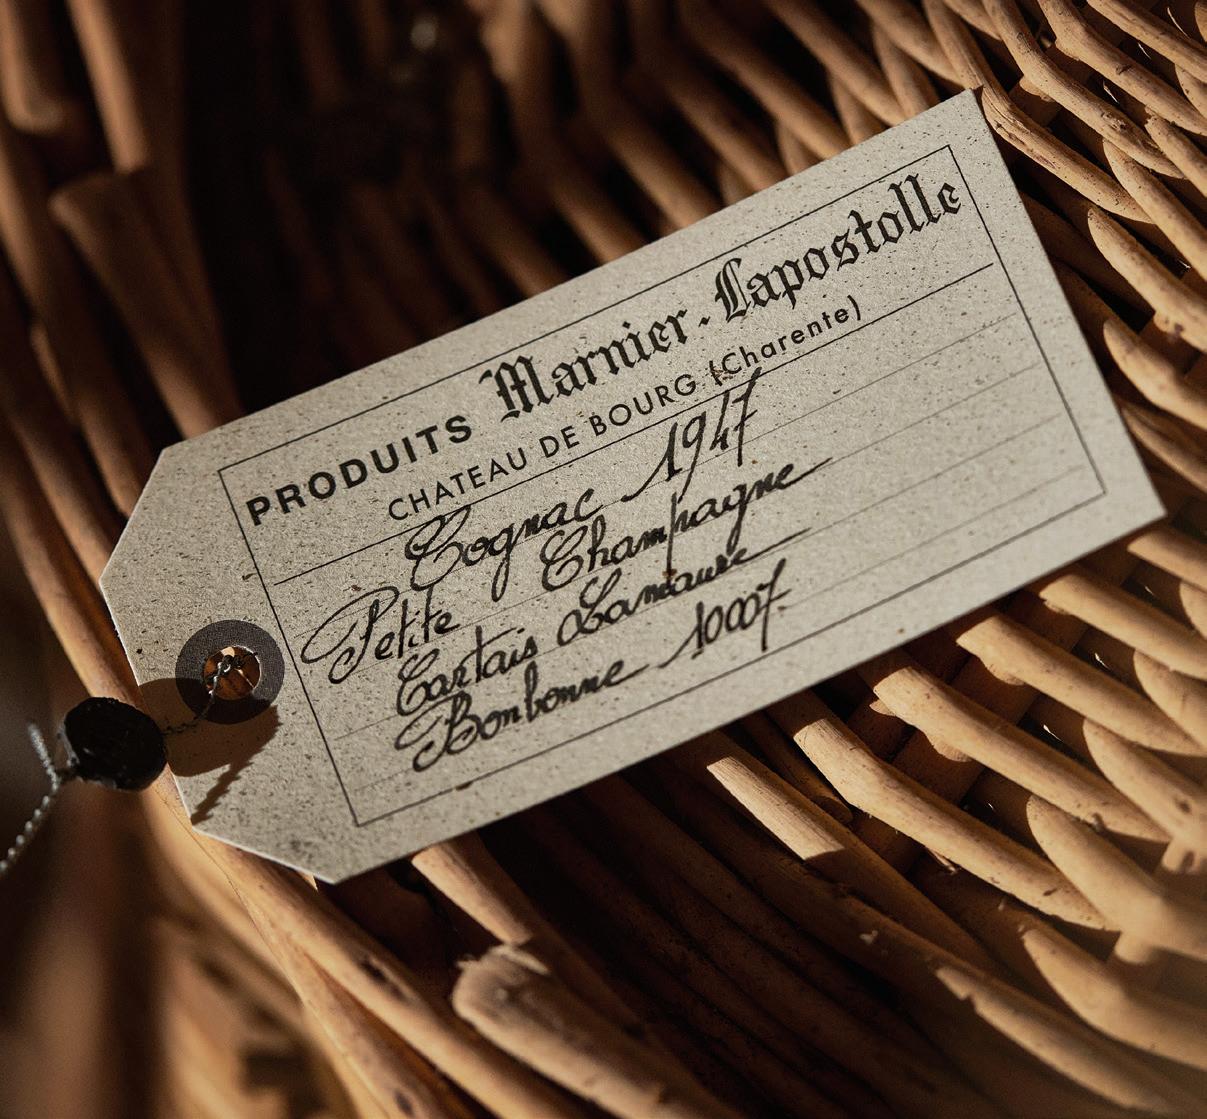 PRODUITS Marnier-Lapostolle
CHATEAU DE BOURG (Charente)
Cognac 1947
Petite Champagne
Bonbonne 10007